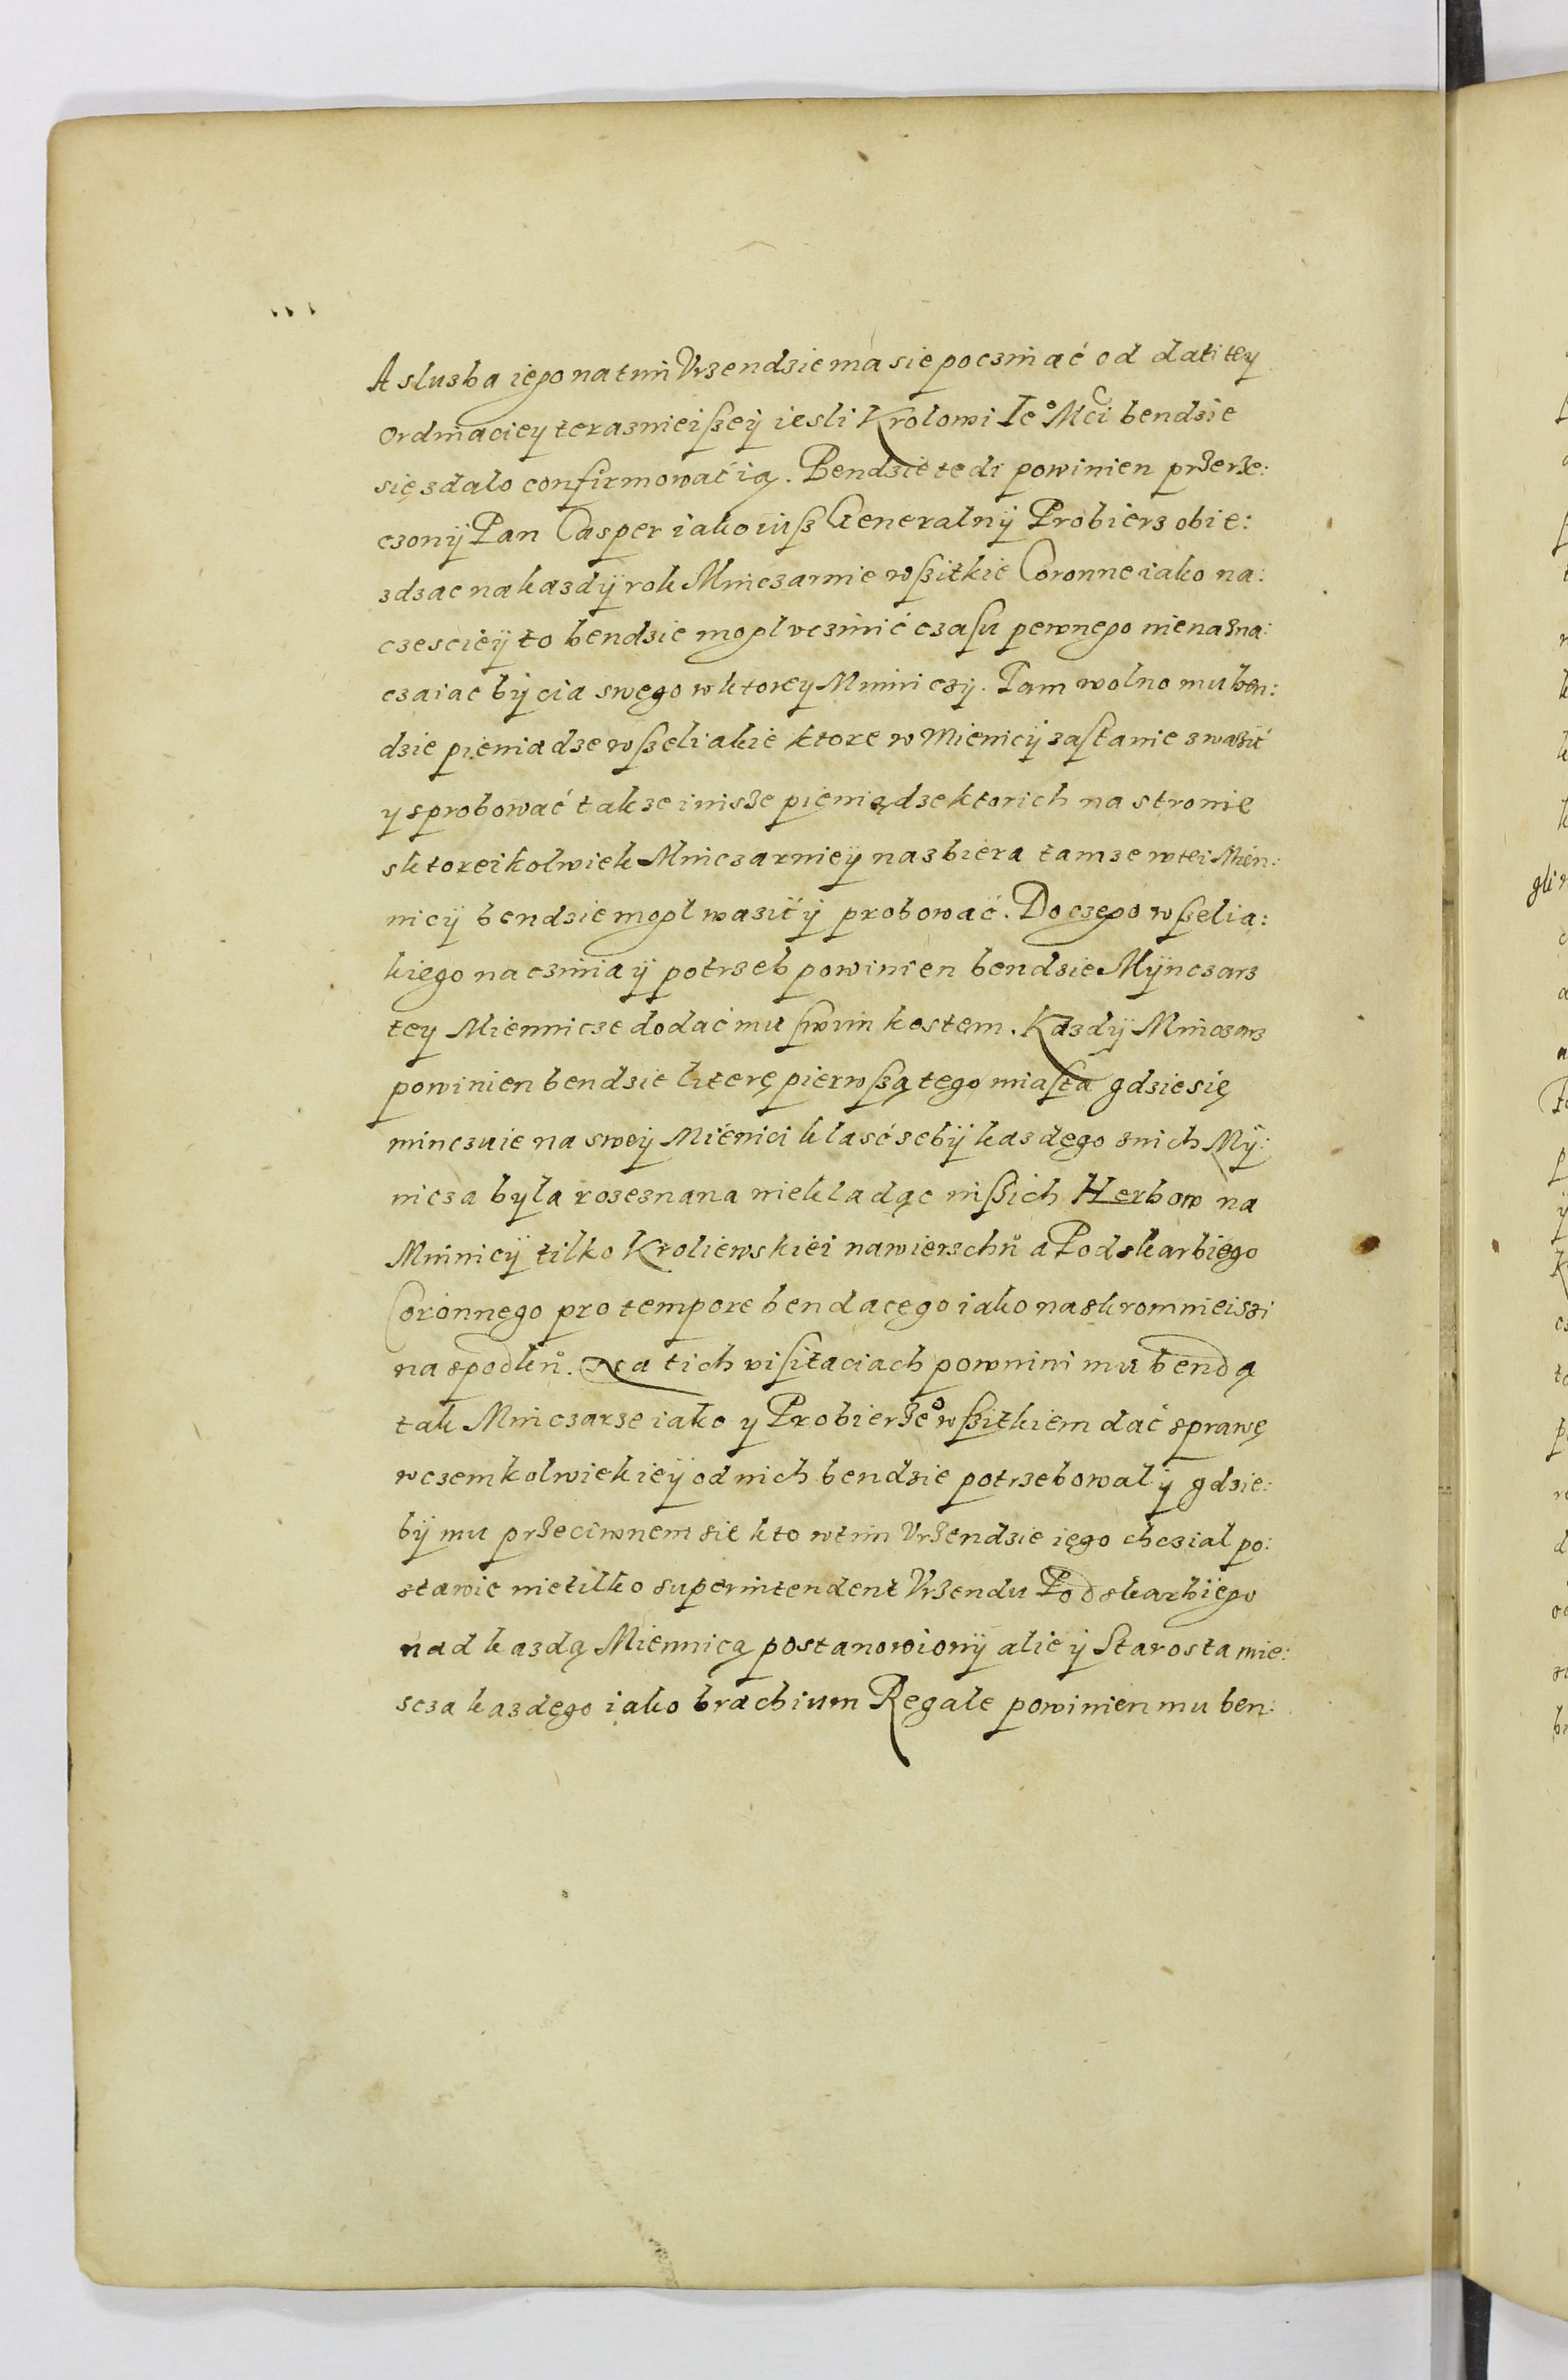 A slusba iego na tim Vrzendzie ma sie poczinać od dati tey
Ordinaciey terasznieißeÿ iesli Krolowi Ie° Mći bendzie
się zdalo confirmować ią. Bendzie tedi powinien przerze:
czonÿ Pan Casper iako iusß Generalnÿ Probierz obie:
zdzac na kazdÿ rok Minczarnie wßitkie Coronne iako na:
czesciеÿ to bendzie mogl vczinić czasu pewnego nienazna:
czaiac bÿcia swego w ktorey Minniczÿ. Tam wolno mu ben:
dzie pieniadze wßeliakie ktore w Miennicÿ zastanie zwazić
y sprobować takze insze pieniądze ktorich na stronie
s ktoreikolwiek Minczarnieÿ nasbiera tamze w tei Mien:
nicÿ bendzie mogl wazić ÿ probować. Do czego wßelia:
kiego naczinia ÿ potrzeb powinien bendzie Mÿnczarz
tey Miennicze dodać mu swim kostem. Kazdÿ Minczarz
powinien bendzie literę pierwßą tego miasta gdzie się
minczuie na sweÿ Miénici klasć zebÿ kazdego znich Mÿ:
nicza byla rozeznana niekladąc inßich Herbow na
Minnicÿ tilko Kroliewskiei na wierzchů a Podskarbiego
Coronnego pro tempore bendacego iako naskromnieiszi
na spodků. Na tich visitaciach powinni mu bendą
tak Minczarze iako y Probierze o wßitkiem dać sprawę
w czemkolwiek ieÿ od nich bendzie potrzebowal ÿ gdzie:
bÿ mu przeciwnem sie kto w tim Vrzendzie iego chczial po:
stawic nie tilko superintendent Vrzendu Podskarbiego
nad kazdą Miennicą postanowionÿ alie ÿ Starosta mie:
scza kazdego iako brachium Regale powinien mu ben: